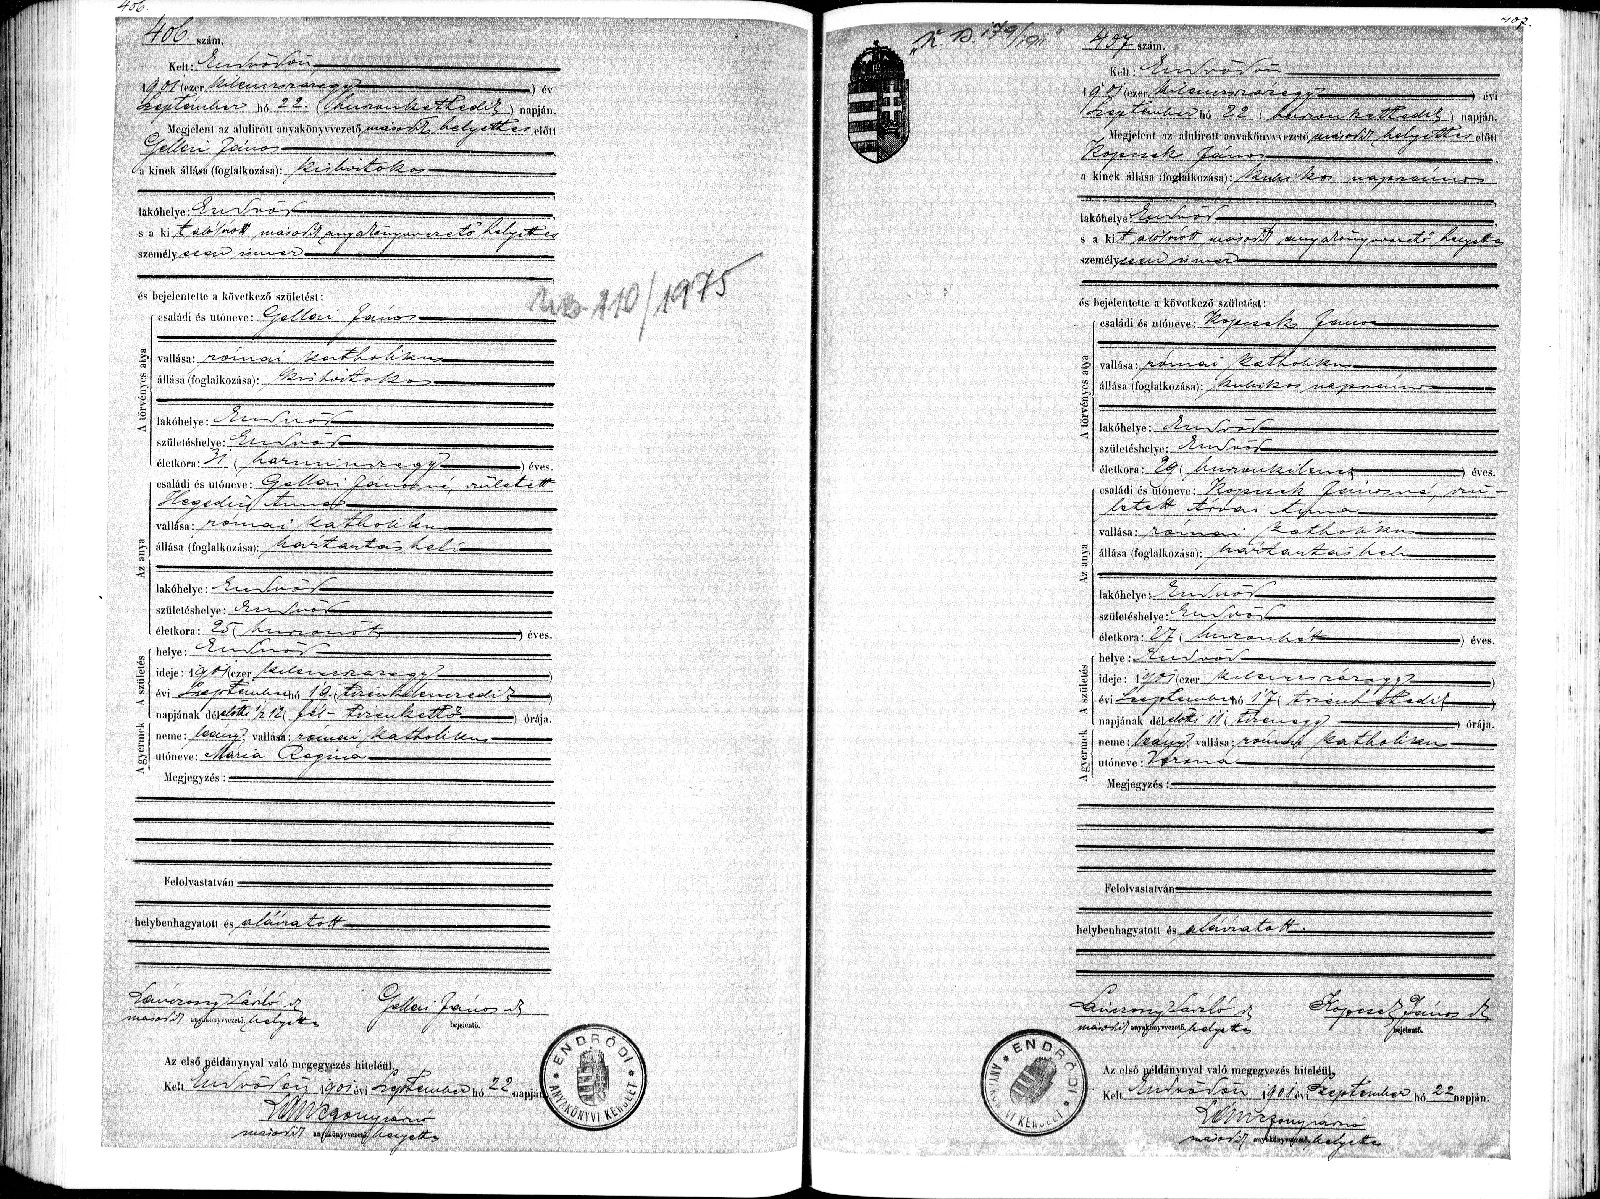 406.
406 szám.
Kelt: Endrődön
1901 (ezer kilenczszázegy) év
szeptember hó 22. (huszonkettedik) napján.
Megjelent az alulirott anyakönyvvezető, második helyettes előtt
Gellai János
a kinek állása (foglalkozása): kisbirtokos
lakóhelye: Endrőd
s a kit alólirott második anyakönyvvezető helyettes
személyesen ismer
és bejelentette a következő születést:
A törvényes atya
családi és utóneve: Gellai János
vallása: római katholikus
állása (foglalkozása): kisbirtokos
lakóhelye: Endrőd
születéshelye: Endrőd
életkora: 31 (harminczegy) éves.
Az anya
családi és utóneve: Gellai Jánosné, született
Hegedűs Anna
vallása: római katholikus
állása (foglalkozása): háztartásbeli
lakóhelye: Endrőd
születéshelye: Endrőd
életkora: 25 (huszonöt) éves.
A születés
helye: Endrőd
ideje: 1901 (ezer kilenczszázegy)
évi szeptember hó 19. (tizenkilenczedik)
napjának délelőtti ½ 12 (fél tizenkettő) órája.
A gyermek
neme: leány; vallása: római katholikus
utóneve: Mária Regina
Megjegyzés:
Felolvastatván
helybenhagyatott és aláiratott
László
Gellai János
második anyakönyvvezető helyettes
bejelentő.
Az első példánynyal való megegyezés hiteléül.
Kelt Endrődön 1901 évi szeptember hó 22 napján.
második anyakönyvvezető helyettes
ENDRŐDI ANYAKÖNYVI KERÜLET
110/1975
407.
179/1911
407 szám.
Kelt: Endrődön
1901 (ezer kilenczszázegy) évi
szeptember hó 22 (huszonkettedik) napján.
Megjelent az alulirott anyakönyvvezető, második helyettes előtt
Kopcsek János
a kinek állása (foglalkozása): kubikos napszámos
lakóhelye: Endrőd
s a kit alólirott második anyakönyvvezető helyettes
személyesen ismer
és bejelentette a következő születést:
A törvényes atya
családi és utóneve: Kopcsek János
vallása: római katholikus
állása (foglalkozása): kubikos napszámos
lakóhelye: Endrőd
születéshelye: Endrőd
életkora: 29 (huszonkilencz) éves.
Az anya
családi és utóneve: Kopcsek Jánosné, szü-
letett Anna
vallása: római katholikus
állása (foglalkozása): háztartásbeli
lakóhelye: Endrőd
születéshelye: Endrőd
életkora: 27 (huszonhét) éves.
A születés
helye: Endrőd
ideje: 1901 (ezer kilenczszázegy)
évi szeptember hó 17 (tizenhetedik)
napjának délelőtti 11 (tizenegy) órája.
A gyermek
neme: leány; vallása: római katholikus
utóneve: Verona
Megjegyzés:
Felolvastatván
helybenhagyatott és aláiratott.
László
Kopcsek János
második anyakönyvvezető, helyettes
bejelentő.
Az első példánynyal való megegyezés hiteléül.
Kelt Endrődön 1901 évi szeptember hó 22 napján.
második anyakönyvvezető, helyettes
ENDRŐDI ANYAKÖNYVI KERÜLET